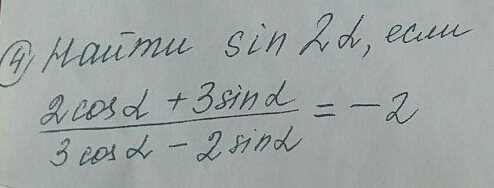 ④ Найти sin 2α, если
2cosα + 3sinα
3cosα − 2sinα = −2